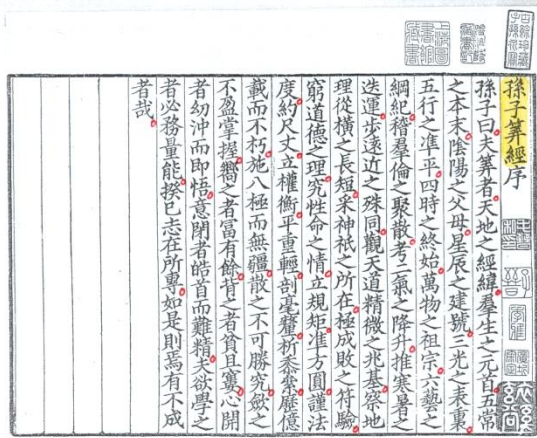 上海圖書館藏書
孫子筭經序
孫子曰夫筭者天地之經緯羣生之元首五常
之本末陰陽之父母星辰之建號三光之表裏
五行之准平四時之終始萬物之祖宗六藝之
綱紀稽羣倫之聚散考二氣之降升推寒暑之
迭運步遠近之殊同觀天道精微之兆基察地
理從橫之長短采神祇之所在極成敗之符驗
窮道德之理究性命之情立規矩准方圓謹法
度約尺丈立權衡平重輕剖毫釐析黍絫歷億
載而不朽施八極而無疆散之不可勝究斂之
不盈掌握嚮之者富有餘背之者貧且窶心開
者幼沖而即悟意閉者皓首而難精夫欲學之
者必務量能揆己志在所專如是則焉有不成
者哉